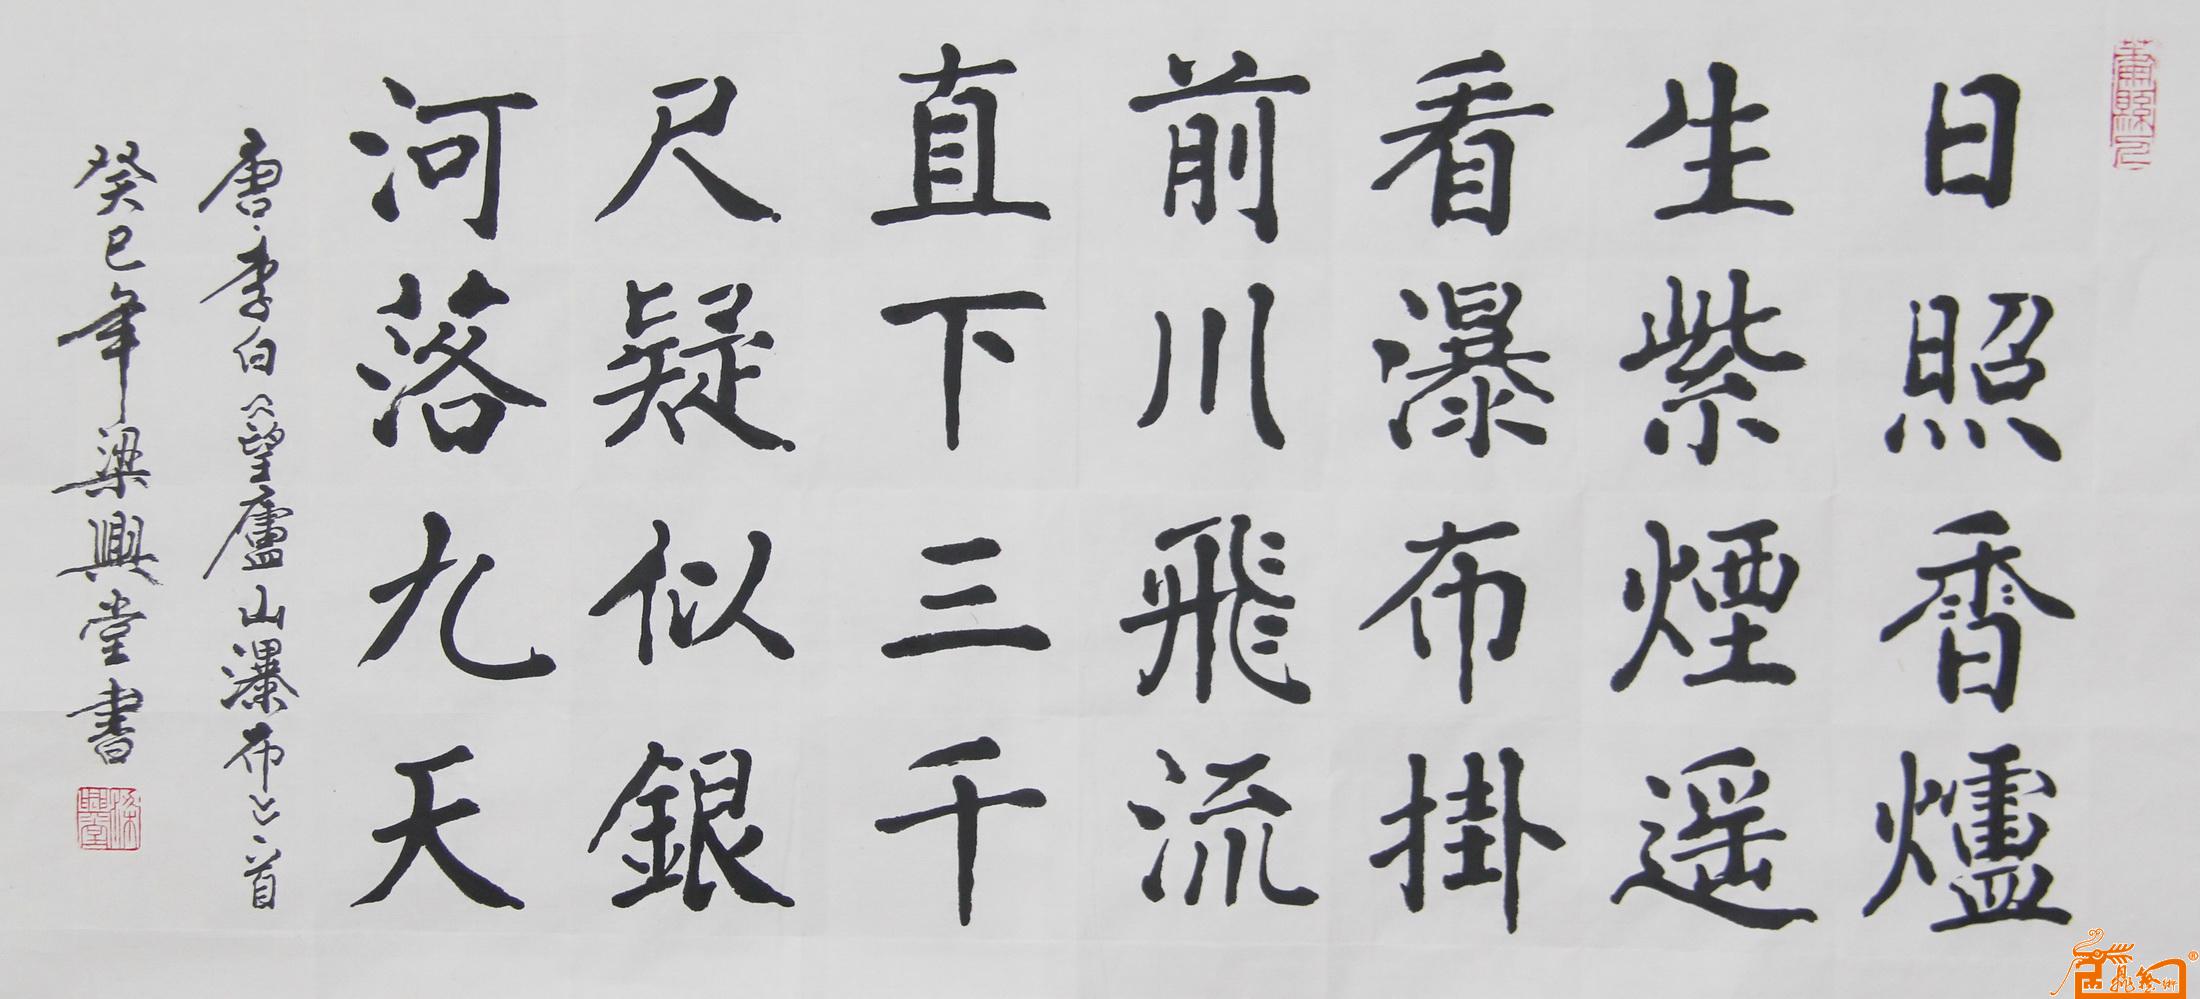 日照香爐
生紫煙遥
看瀑布掛
前川飛流
直下三千
尺疑似銀
河落九天
唐·李白《望廬山瀑布》一首
癸巳年梁興堂書
梁興堂